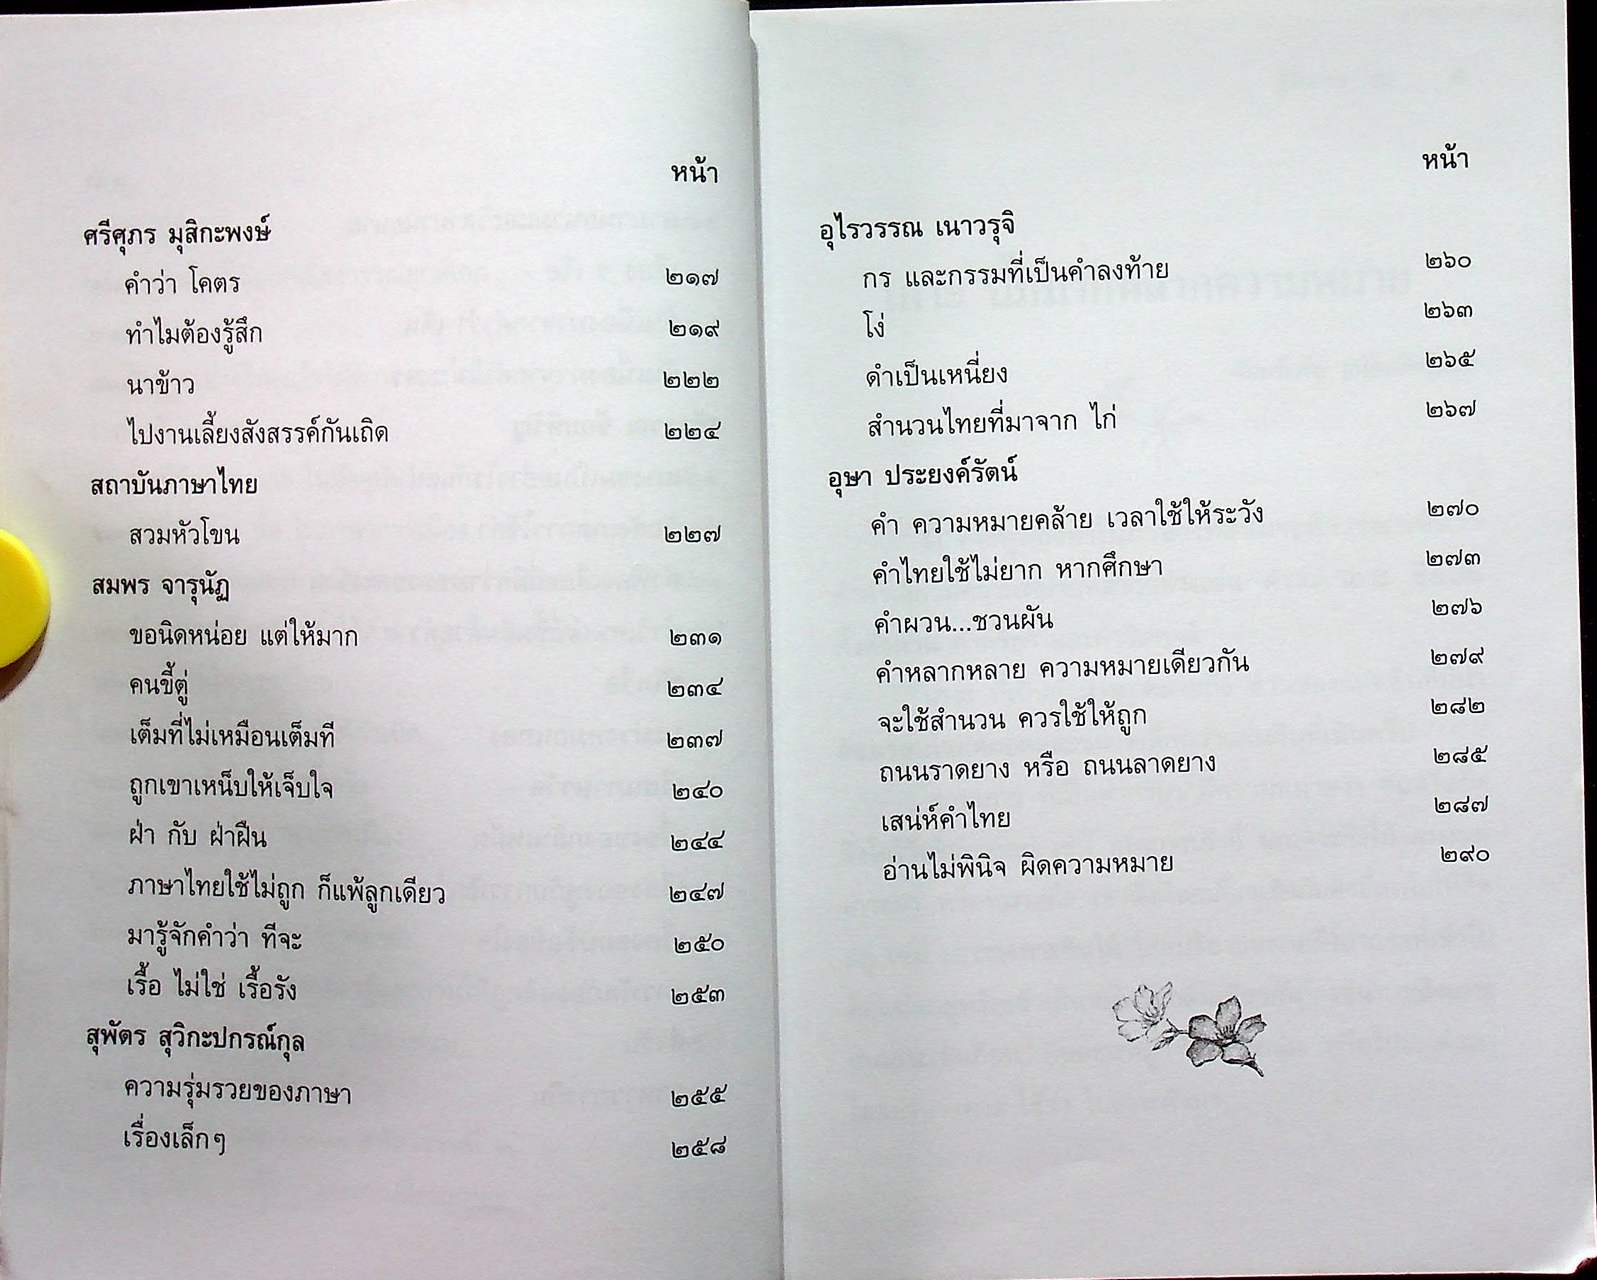 หน้า
ศรีศุภร มุสิกะพงษ์
คำว่า โคตร ๒๑๗
ทำไมต้องรู้สึก ๒๑๙
นาข้าว ๒๒๒
ไปงานเลี้ยงสังสรรค์กันเถิด ๒๒๔
สถาบันภาษาไทย
สวมหัวโขน ๒๒๗
สมพร จารุนัฏ
ขอนิดหน่อย แต่ให้มาก ๒๓๑
คนขี้ตู่ ๒๓๔
เต็มที่ไม่เหมือนเต็มที ๒๓๗
ถูกเขาเหน็บให้เจ็บใจ ๒๔๐
ฝ่า กับ ฝ่าฝืน ๒๔๔
ภาษาไทยใช้ไม่ถูก ก็แพ้ลูกเดียว ๒๔๗
มารู้จักคำว่า ทีจะ ๒๕๐
เรื้อ ไม่ใช่ เรื้อรัง ๒๕๓
สุพัตร สุวิกะปกรณ์กุล
ความรุ่มรวยของภาษา ๒๕๕
เรื่องเล็กๆ ๒๕๘
หน้า
อุไรวรรณ เนาวรุจิ
กร และกรรมที่เป็นคำลงท้าย ๒๖๐
โง่ ๒๖๓
ดำเป็นเหนี่ยง ๒๖๕
สำนวนไทยที่มาจาก ไก่ ๒๖๗
อุษา ประยงค์รัตน์
คำ ความหมายคล้าย เวลาใช้ให้ระวัง ๒๗๐
คำไทยใช้ไม่ยาก หากศึกษา ๒๗๓
คำผวน...ชวนผัน ๒๗๖
คำหลากหลาย ความหมายเดียวกัน ๒๗๙
จะใช้สำนวน ควรใช้ให้ถูก ๒๘๒
ถนนราดยาง หรือ ถนนลาดยาง ๒๘๕
เสน่ห์คำไทย ๒๘๗
อ่านไม่พินิจ ผิดความหมาย ๒๙๐